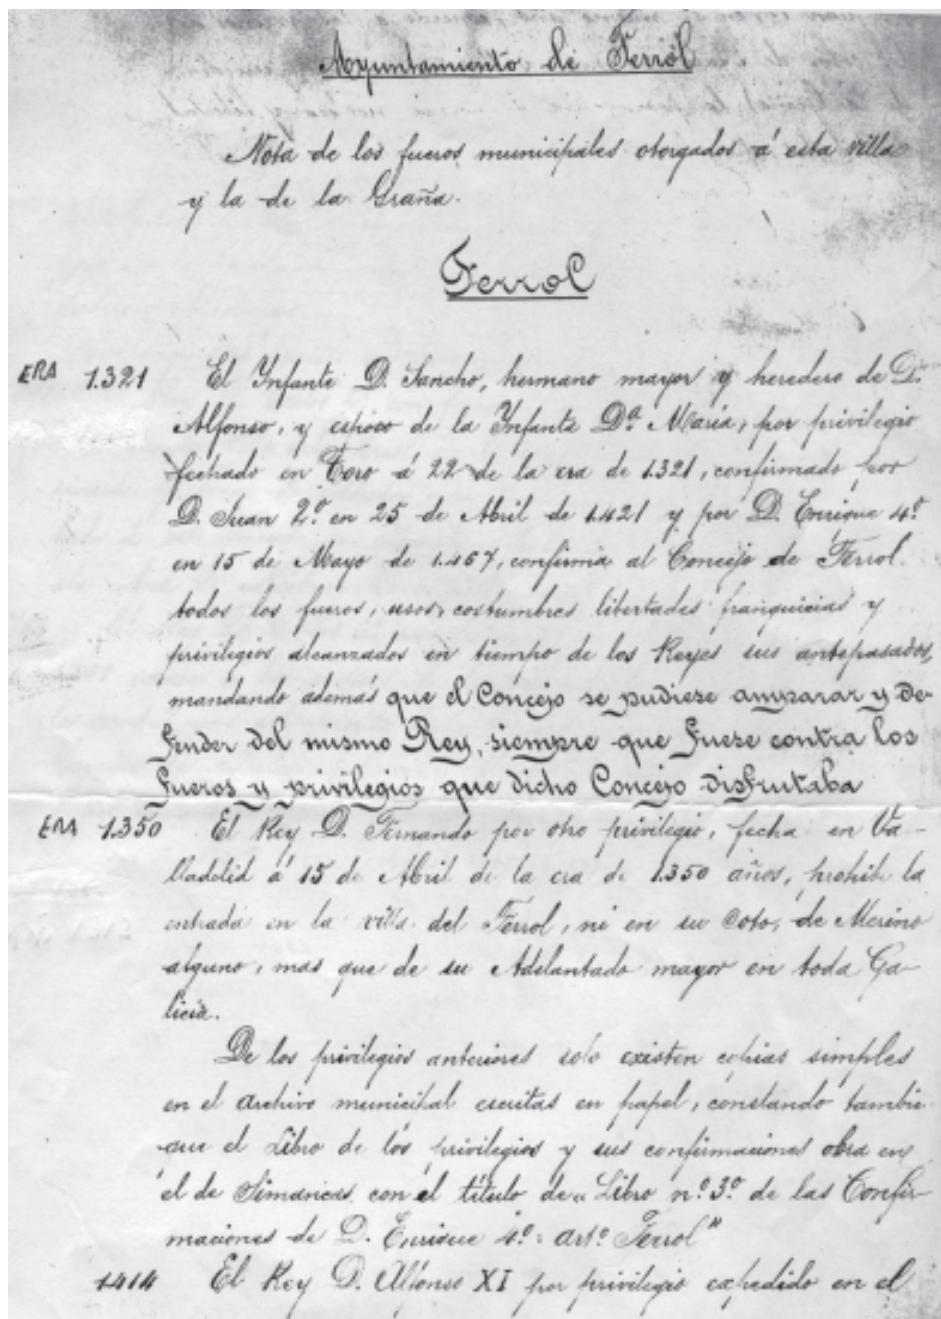 Ayuntamiento de Ferrol
Nota de los fueros municipales otorgados á esta villa
y la de la Graña.
Ferrol
ERA 1.321 El Ynfante D. Sancho, hermano mayor y heredero de D.
Alfonso, y esposo de la Ynfanta Dª María, por privilegio
fechado en Toro á 22 de la era de 1.321, confirmado por
D. Juan 2º en 25 de Abril de 1.421 y por D. Enrique 4º
en 15 de Mayo de 1.467, confirma al Concejo de Ferrol
todos los fueros, usos, costumbres libertades franquicias y
privilegios alcanzados en tiempo de los Reyes sus antepasados,
mandando además que el Concejo se pudiese amparar y de-
fender del mismo Rey, siempre que fuese contra los
fueros y privilegios que dicho Concejo disfrutaba
ERA 1.350 El Rey D. Fernando por otro privilegio, fecha en Va-
lladolid á 15 de Abril de la era de 1.350 años, prohibe la
entrada en la villa del Ferrol, ni en su coto, de Merino
alguno, mas que de su Adelantado mayor en toda Ga-
licia.
De los privilegios anteriores solo existen copias simples
en el archivo municipal escritas en papel, constando tambie
que el Libro de los privilegios y sus confirmaciones obra en
el de Simancas con el título de "Libro nº 3º de las Confir-
maciones de D. Enrique 4º = artº Ferrol"
1414 El Rey D. Alfonso XI por privilegio expedido en el